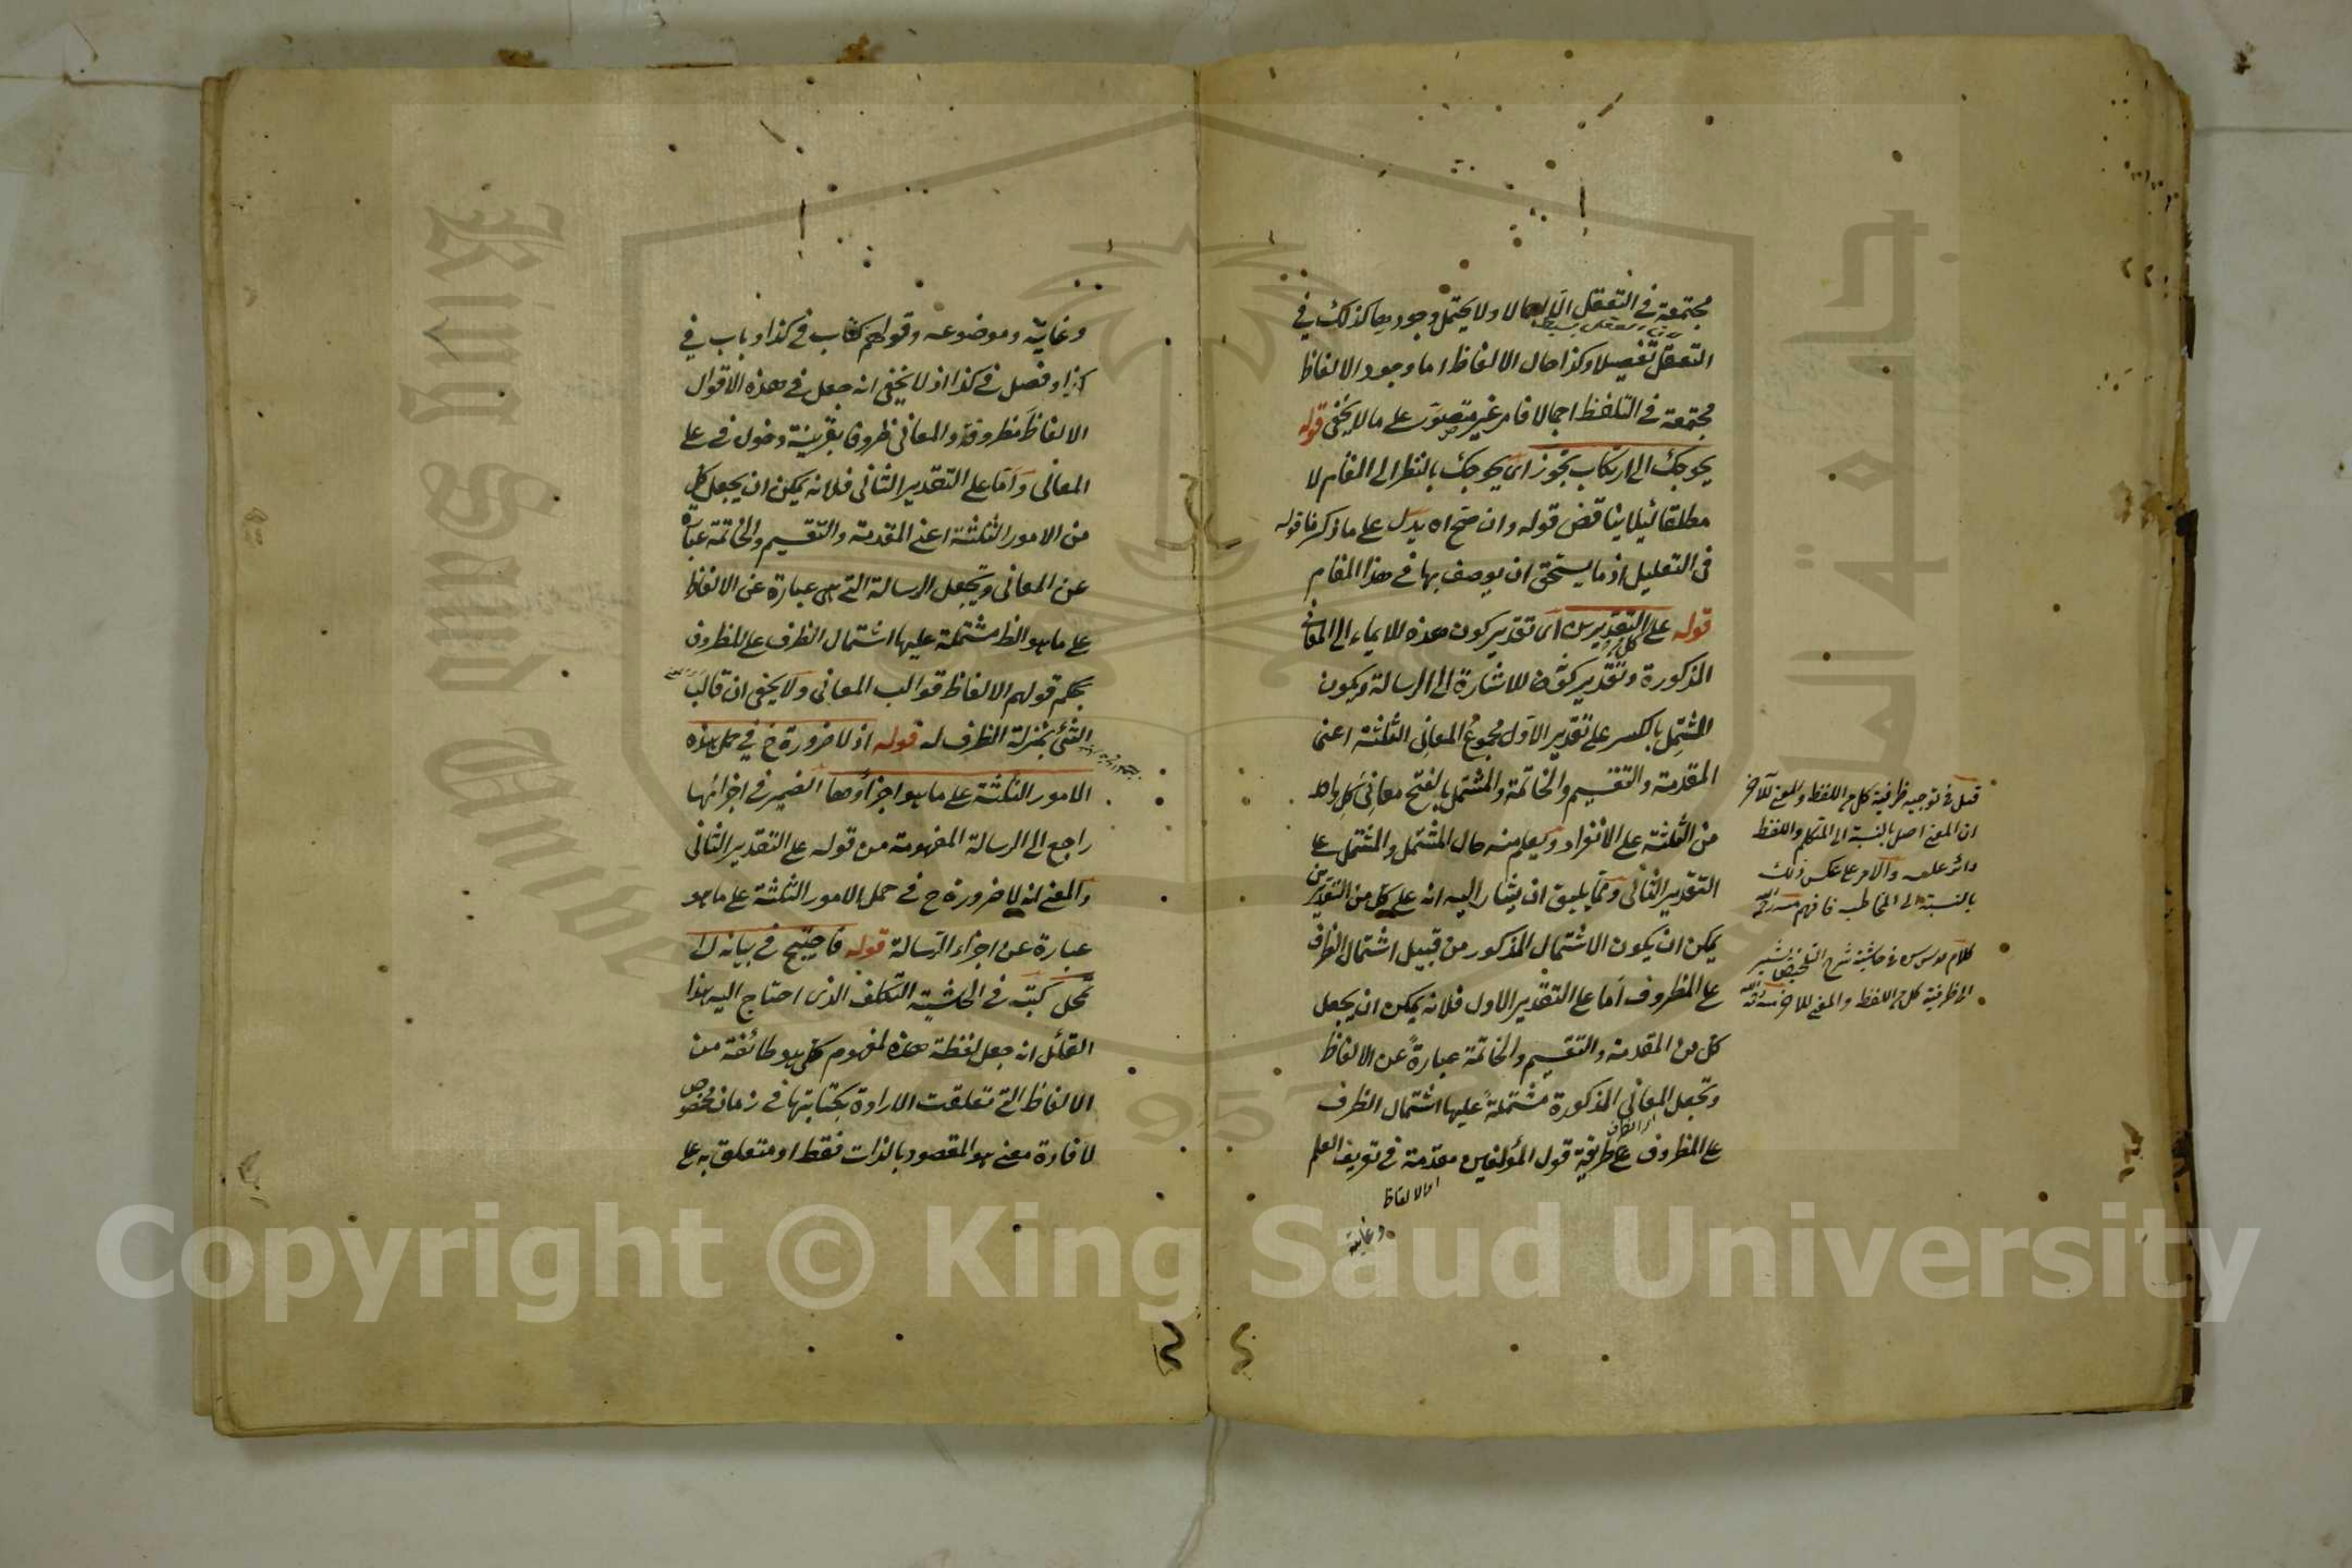 مجتمعة في التعقل الا اجمالا ولا يحتمل وجودها كذلك في
التعقل تفصيلا وكذا حال الالفاظ اما وجود الالفاظ
مجتمعة في التلفظ اجمالا فامر غير متصور على ما لا يخفى قوله
يحوجك الى ارتكاب تجوز اى يحوجك بالنظر الى المقام لا
مطلقا لئلا يناقض قوله وان صح اه يدل على ما ذكرنا قوله
في التعليل اذ ما يستحق ان يوصف بها في هذا المقام
قوله على التقديرين اى تقدير كون هذه للايماء الى المعانى
المذكورة وتقدير كونها للاشارة الى الرسالة ويكون
المشتمل بالكسر على تقدير الاول مجموع المعانى الثلثة اعنى
المقدمة والتقسيم والخاتمة والمشتمل بالفتح معانى كل واحد
من الثلثة على الانفراد ويعلم منه حال المشتمل والمشتمل على
التقدير الثانى ومما يليق ان يشار اليه انه على كل من التقديرين
يمكن ان يكون الاشتمال المذكور من قبيل اشتمال الظرف
على المظروف اما على التقدير الاول فلانه يمكن ان يجعل
كل من المقدمة والتقسيم والخاتمة عبارة عن الالفاظ
وتجعل المعانى المذكورة مشتملة عليها اشتمال الظرف
على المظروف على طريقة قول المؤلفين مقدمة في تعريف العلم
اى الالفاظ
وغايته
قيل في توجيه ظرفية كل من اللفظ والمعنى للآخر
ان المعنى اصل بالنسبة الى المتكلم واللفظ
دائر عليه والامر على عكس ذلك
بالنسبة الى المخاطب فافهم منه
كلام قدس سره في حاشية شرح التلخيص يشير
الى ظرفية كل من اللفظ والمعنى للآخر منه
وغايته وموضوعه وقولهم كتاب في كذا وباب في
كذا وفصل في كذا اذ لا يخفى انه جعل في هذه الاقوال
الالفاظ مظروفة والمعانى ظروفا بقرينة دخول في على
المعانى واما على التقدير الثانى فلانه يمكن ان يجعل كل
من الامور الثلثة اعنى المقدمة والتقسيم والخاتمة عبارة
عن المعانى وتجعل الرسالة التى هى عبارة عن الالفاظ
على ما هو الظ مشتملة عليها اشتمال الظرف على المظروف
بحكم قولهم الالفاظ قوالب المعانى ولا يخفى ان قالب
الشئ بمنزلة الظرف له قوله اذ لا ضرورة ح في حمل هذه
الامور الثلثة على ما هو اجزاؤها الضمير في اجزائها
راجع الى الرسالة المفهومة من قوله على التقدير الثانى
والمعنى انه لا ضرورة ح في حمل الامور الثلثة على ما هو
عبارة عن اجزاء الرسالة قوله فاحتيج في بيانه الى
تمحل كتب في الحاشية التكلف الذى احتاج اليه هذا
القائل انه جعل لفظة هذه لمفهوم كلى هو طائفة من
الالفاظ التى تعلقت الارادة بكتابتها في زمان مخصوص
لافادة معنى هو المقصود بالذات فقط او متعلق به على
Copyright © King Saud University
King Saud University
جامعة الملك
957